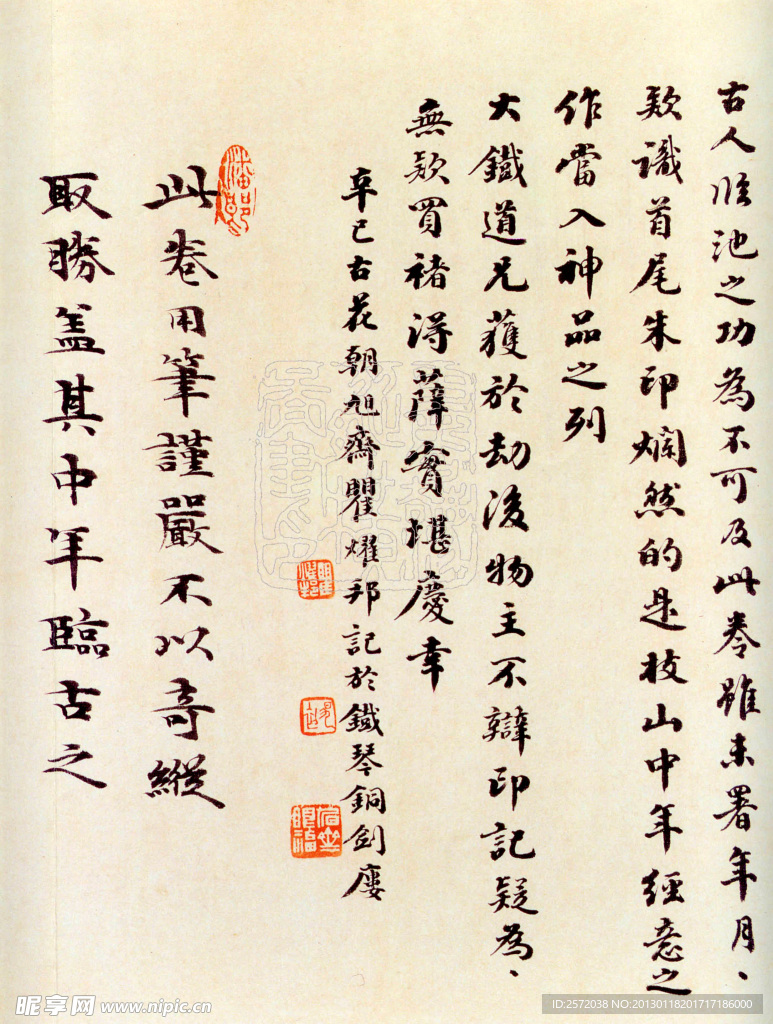 古人臨池之功為不可及此卷雖未署年月、
款識首尾朱印爛然的是枝山中年經意之
作當入神品之列
大鐵道兄獲於劫後物主不辯印記疑為、
無款買褚得薛實堪慶幸
辛巳古花朝旭齋瞿燿邦記於鐵琴銅劍廔
此卷用筆謹嚴不以奇縱
取勝蓋其中年臨古之
昵享网 www.nipic.cn
ID:2572038 NO:20130118201717186000